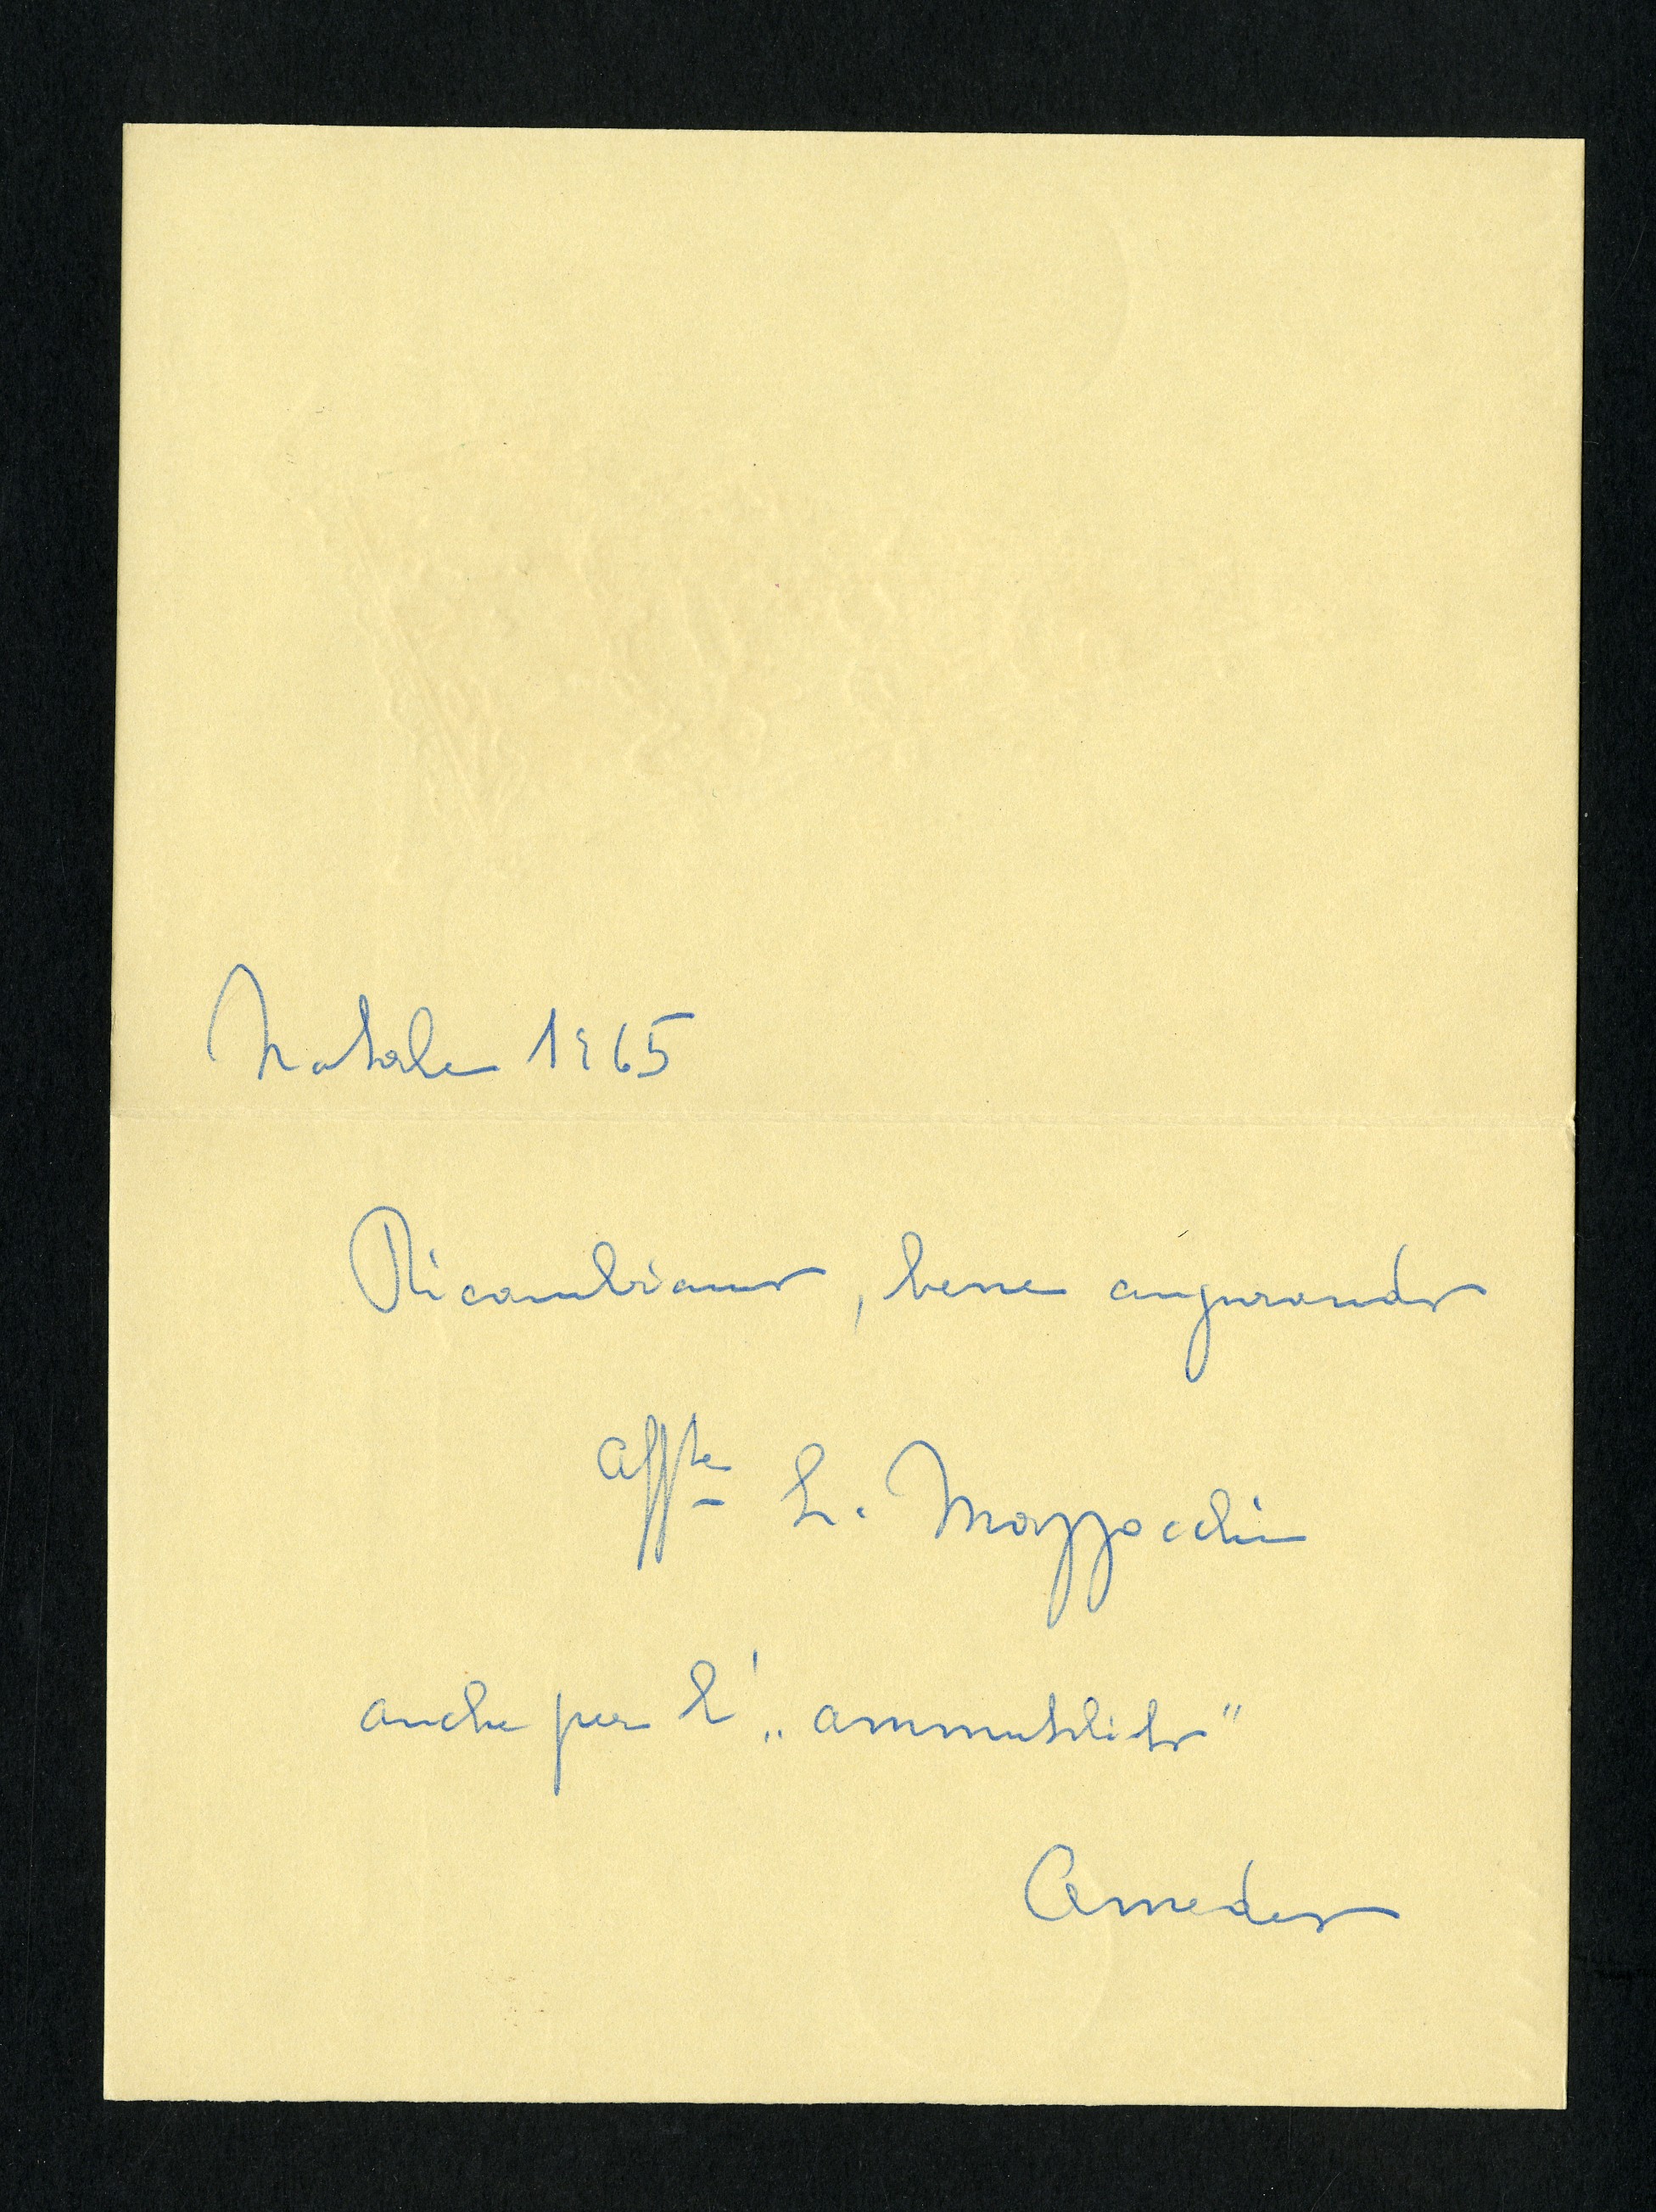 Natale 1965
Ricambiamo, bene augurando
affte L. Mazzocchi
anche per l' „ammutolito"
Amedeo